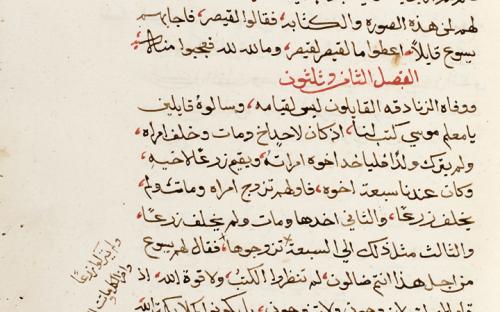 لهم لمن هذه الصوره والكتابه فقالوا لقيصر فاجابهم
يسوع قايلا اعطوا ما لقيصر لقيصر وما لله لله فعجبوا منه
الفصل الثامن وثلثون
ووفاه الزنادقه القايلون ليس لقيامه وسالوه قايلين
يا معلم موسي كتب لنا اذ كان لاحد اخ ومات وخلف امراه
ولم يترك ولدا فلياخد اخوه امراته ويقيم زرعا لاخيه
وكان عندنا سبعة اخوه فاولهم تزوج امراه ومات ولم
يخلف زرعا والثاني اخدها ومات ولم يخلف زرعا
والثالث مثل ذلك الي السبعة تزوجوها فقال لهم يسوع
من اجل هذا انتم ضالون لم تنظروا الكتب ولا قوة الله اذ